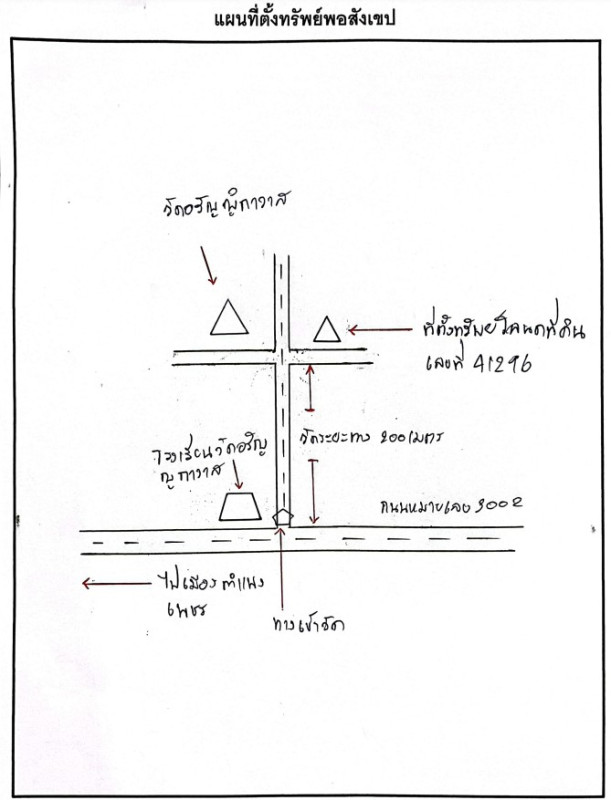 แผนที่ตั้งทรัพย์พอสังเขป
วัดอรัญญิกาวาส
ที่ตั้งทรัพย์โฉนดที่ดิน
เลขที่ 41296
วัดระยะทาง 200 เมตร
โรงเรียนวัดอรัญ
ญิกาวาส
ถนนหมายเลข 3002
ไปเมืองกำแพง
เพชร
ทางเข้าวัด